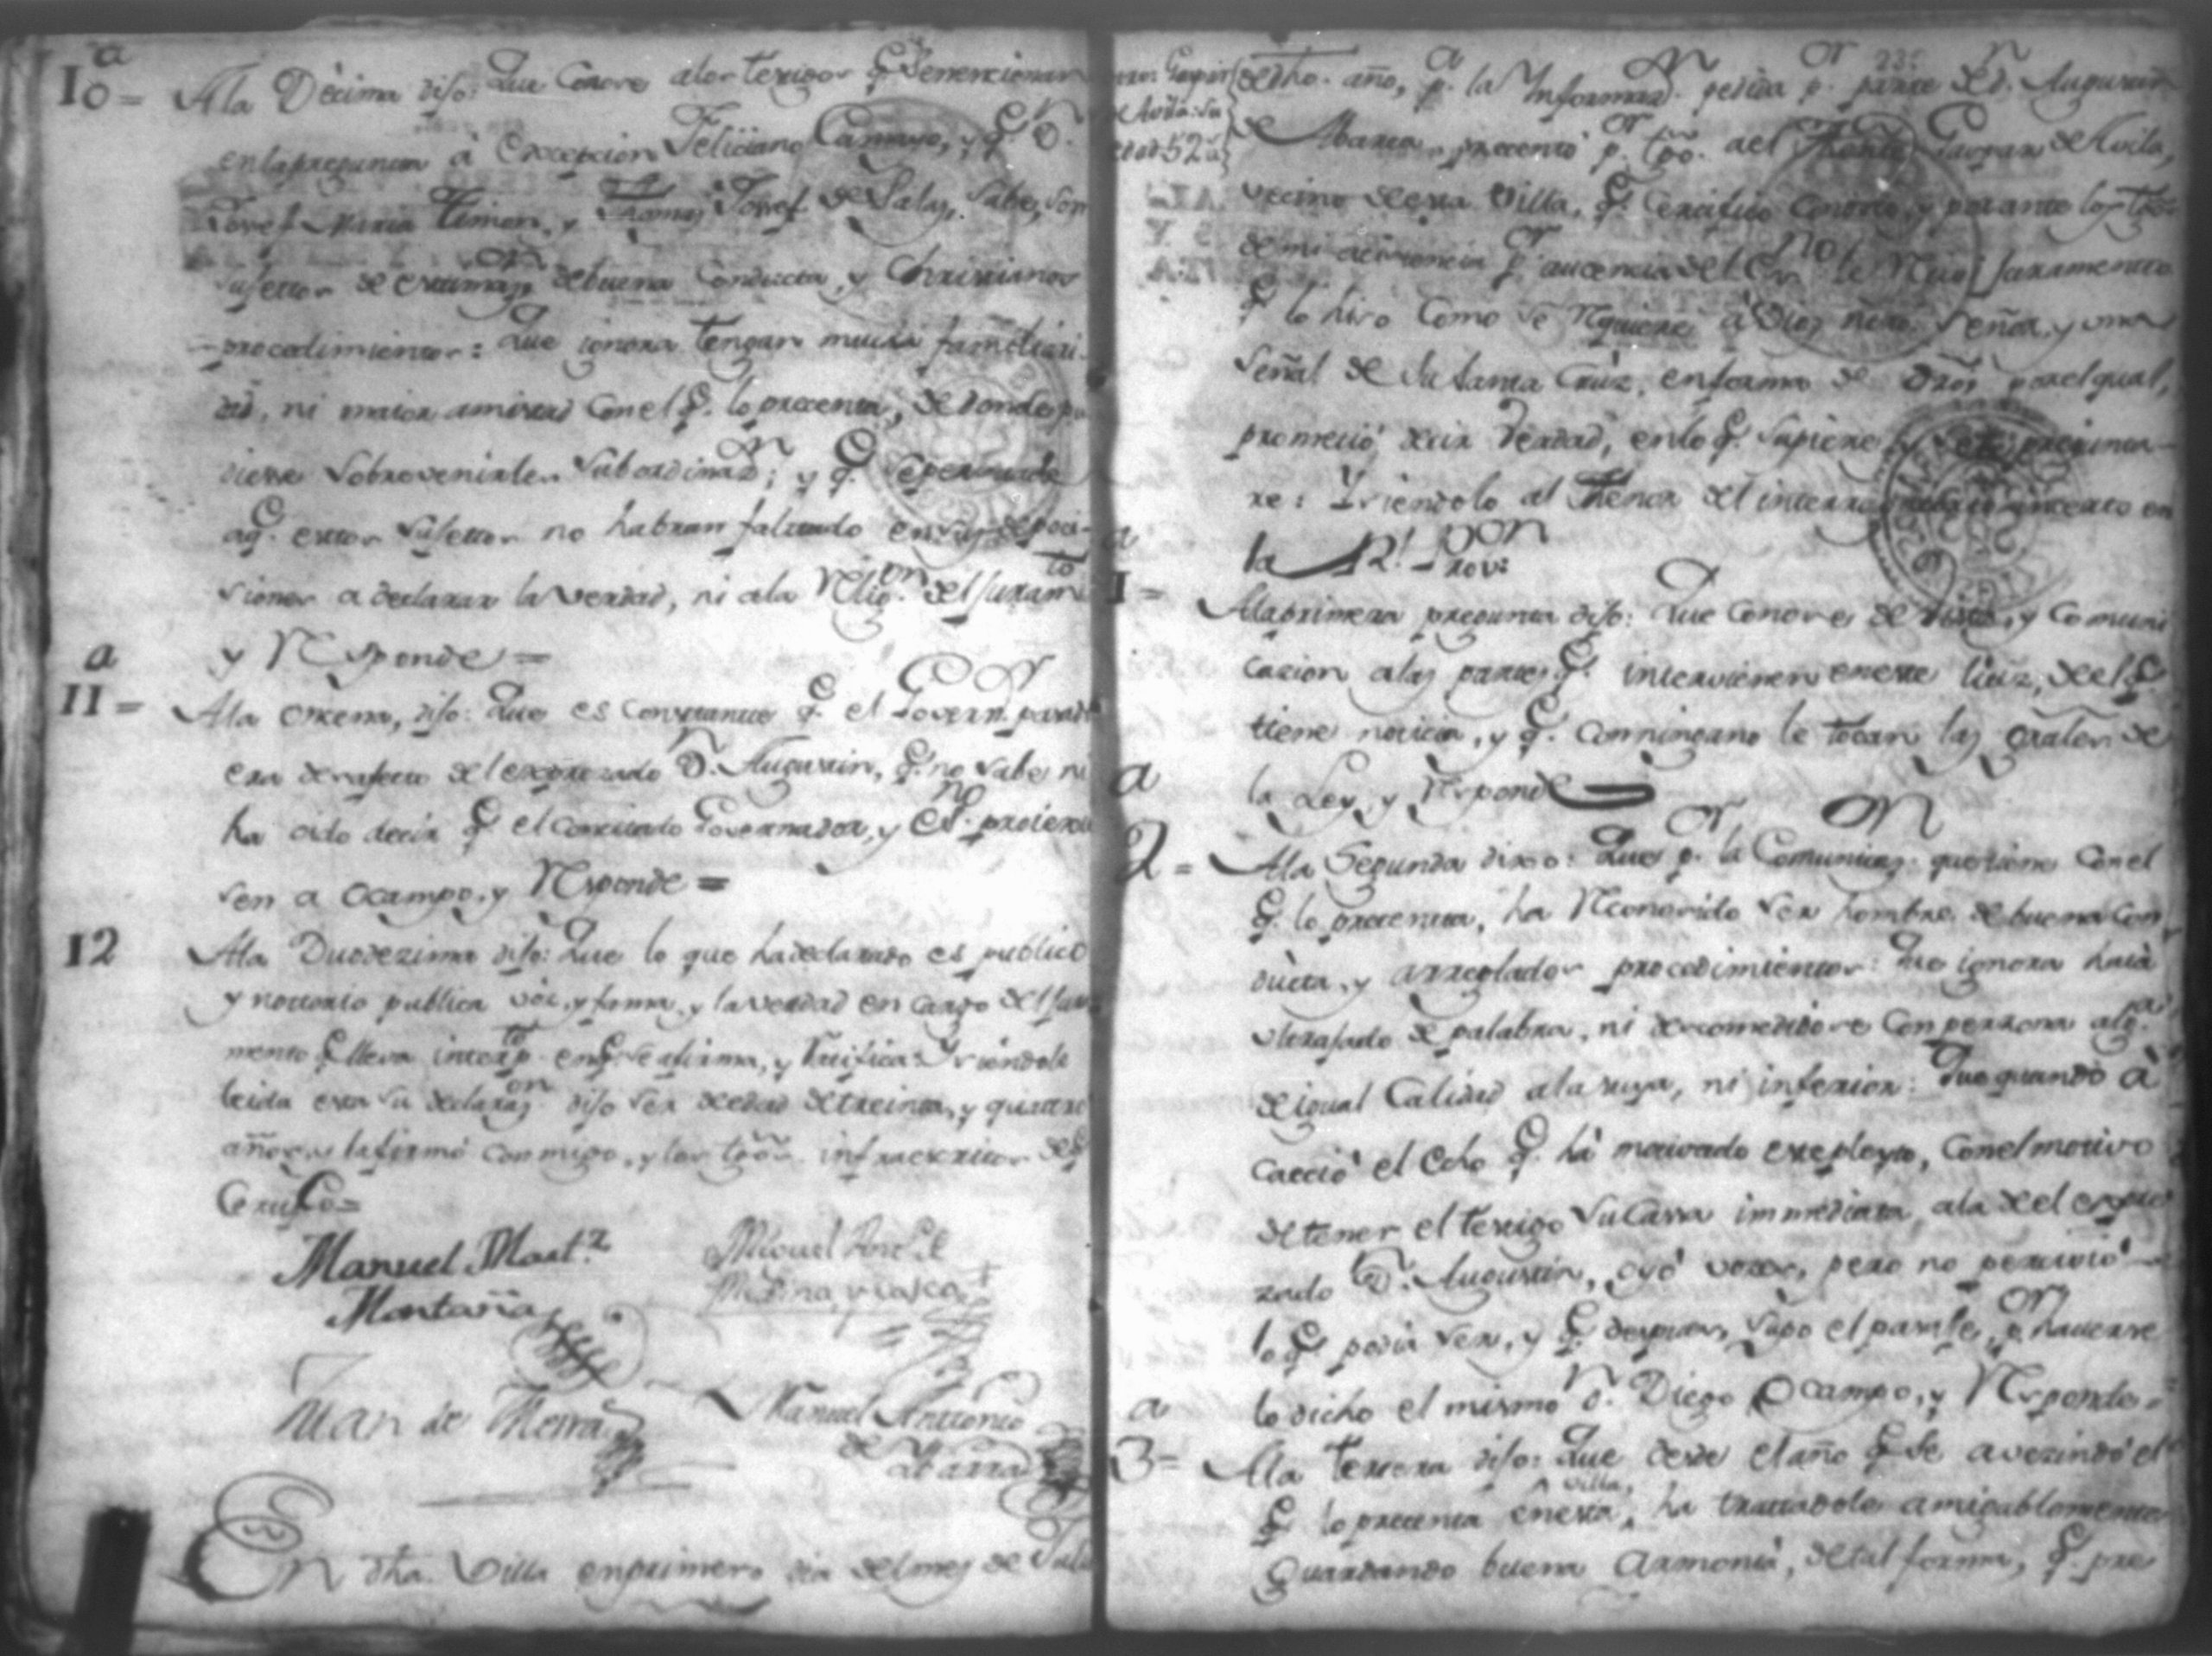 10ª = A la Décima dijo: Que Conose a los testigos q.e se mencionan
en la pregunta à Excepcion Feliciano Camayo, y q.e D.n
Josef Maria Timon, y Thomas Josef de Salas, Sabe, son
sujettos de estimaz.on de buena Conducta, y Christianos
procedimientos: Que ignora tengan mucha familiari-
dad, ni maior amistad Con el q.e lo precenta, de donde pu
diesse sobrevenirles subordinaz.n; y q.e se persuade
a q.e estos sujettos no habran faltado en sus deposi-
siones a declarar la verdad, ni a la Relig.on del juram.to
y Responde =
11ª = A la Oncena, dijo: Que es Constante q.e el Govern.or pasado
era desafecto del expresado D.n Augustin, q.e no sabe, ni
ha oido decir q.e el Concitado Governador, y Es.no protexie
sen a Ocampo, y Responde =
12 A la Duodezima dijo: Que lo que ha declarado es publico
y nottorio publica vòz, y fama, y la verdad en cargo del jura
mento q.e lleva interp.to en q.e se afirma, y Ratifica: Y siendole
leida esta su declaraz.on dijo ser de edad de treinta, y quattro
años, y la firmó Conmigo, y los tgos. infraescritos de q.e
Certifico =
Manuel Mart.z
Montaña
Miguel Ang.l
Medina
Juan de Mema
Manuel Antonio
de Abarra
En dha. Villa en primero dia del mes de Julio
Gaspar
de Avila: Su
edad 52 a.s
de dho. año, p.a la Informaz.on pedida p.or parte de D.n Augustin
de Abarca, precentó p.or tgo. a el Gaspar de Avila,
vecino de esta Villa, q.e Certifico Conosco, y por ante los tgos
de mi acistencia p.or aucencia del Es.no le Reciví juramento
q.e lo hiso Como se Rquiere à Dios nrõ. Señor, y una
señal de Su Santa Crùz, en forma de drõ, por el qual,
prometió decir Verdad, en lo q.e supiere, y se le pregunta-
re: Y siendolo al Thenor del interrogatorio incerto en
la
1ª = A la primera pregunta dijo: Que Conose de vista, y Comuni
cacion a las partes q.e intervienen en este litiz, de el q.e
tiene noticia, y q.e Con ninguno le tocan las grãles de
la Ley, y Responde =
2ª = A la Segunda dixo: Que p.or la Comunicaz.on que tiene Con el
q.e lo precenta, ha Reconocido ser hombre de buena Con
ducta, y arreglados procedimientos: Que ignora haià
ultrajado de palabra, ni descomedidose Con persona alg.a
de igual Calidad a la suya, ni inferior: Que quando à
caeció el Echo q.e hà motivado este pleyto, Con el motivo
de tener el testigo su Cassa immediata, a la de el expre
zado D.n Augustin, oyó voces, pero no percivió
lo q.e podia ser, y q.e despues, supo el pasaje, p.or haverse
lo dicho el mismo D.n Diego Ocampo, y Responde =
3ª = A la tercera dijo: Que desde el año q.e se avezindó el
q.e lo precenta en esta villa, ha trattadole amigablemente
Guardando buena Armonia, de tal forma, q.e pre